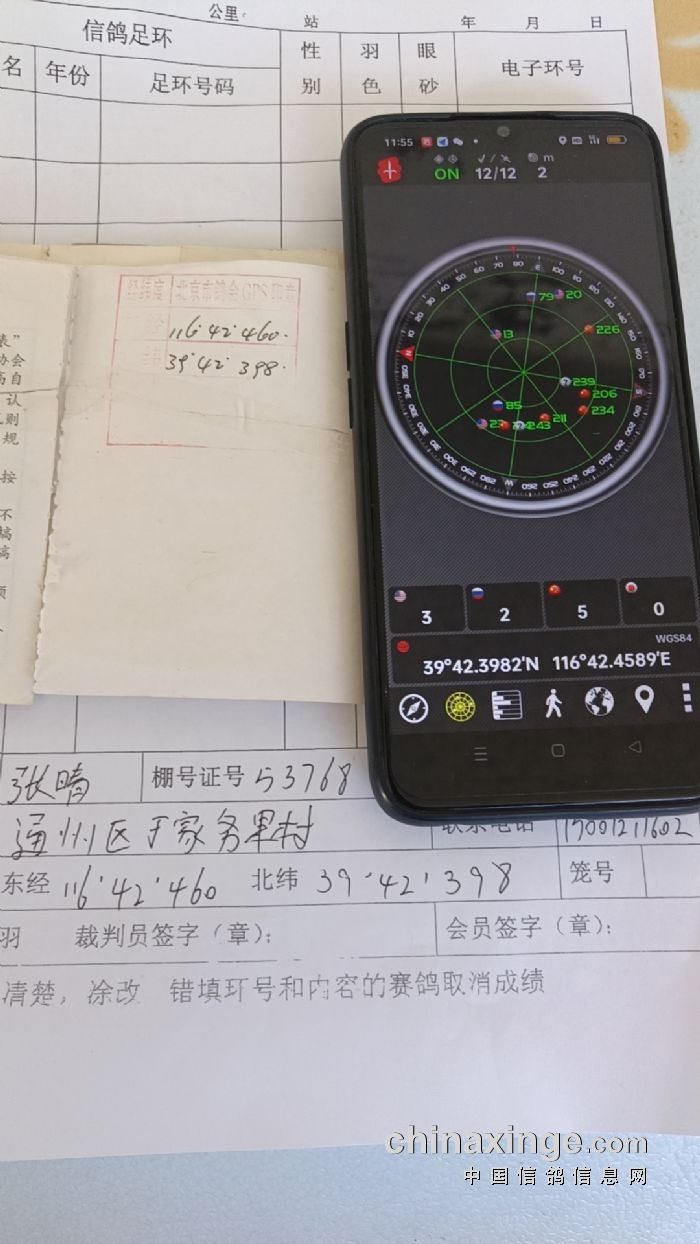 公里: 站 年 月 日
信鸽足环 性别 羽色 眼砂 电子环号
名 年份 足环号码
11:55
ON 12/12 2 m
经纬度 北京市鸽会GPS印章
116°42′460.
39°42′398.
表"
协会
高自
认
则
规
按
不
79 20
13 226
239
206
85 234
211
243
3 2 5 0
WGS84
39°42.3982'N 116°42.4589'E
张晴 棚号证号 53768
通州区于家务果村 联系电话
东经 116°42′460 北纬 39°42′398 笼号
羽 裁判员签字（章）: 会员签字（章）:
清楚，涂改 错填环号和内容的赛鸽取消成绩
chinaxinge.com
中国信鸽信息网